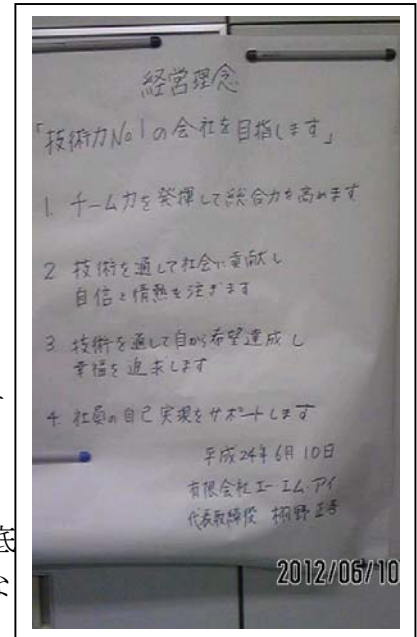 経営理念
「技術力No1の会社を目指します」
1. チーム力を発揮して総合力を高めます
2 技術を通して社会に貢献し
自信と情熱を注ぎます
3. 技術を通して自から希望達成し
幸福を追求します
4. 社員の自己実現をサポートします
平成24年6月10日
有限会社エー・エム・アイ
代表取締役 栩野正
2012/06/10
底